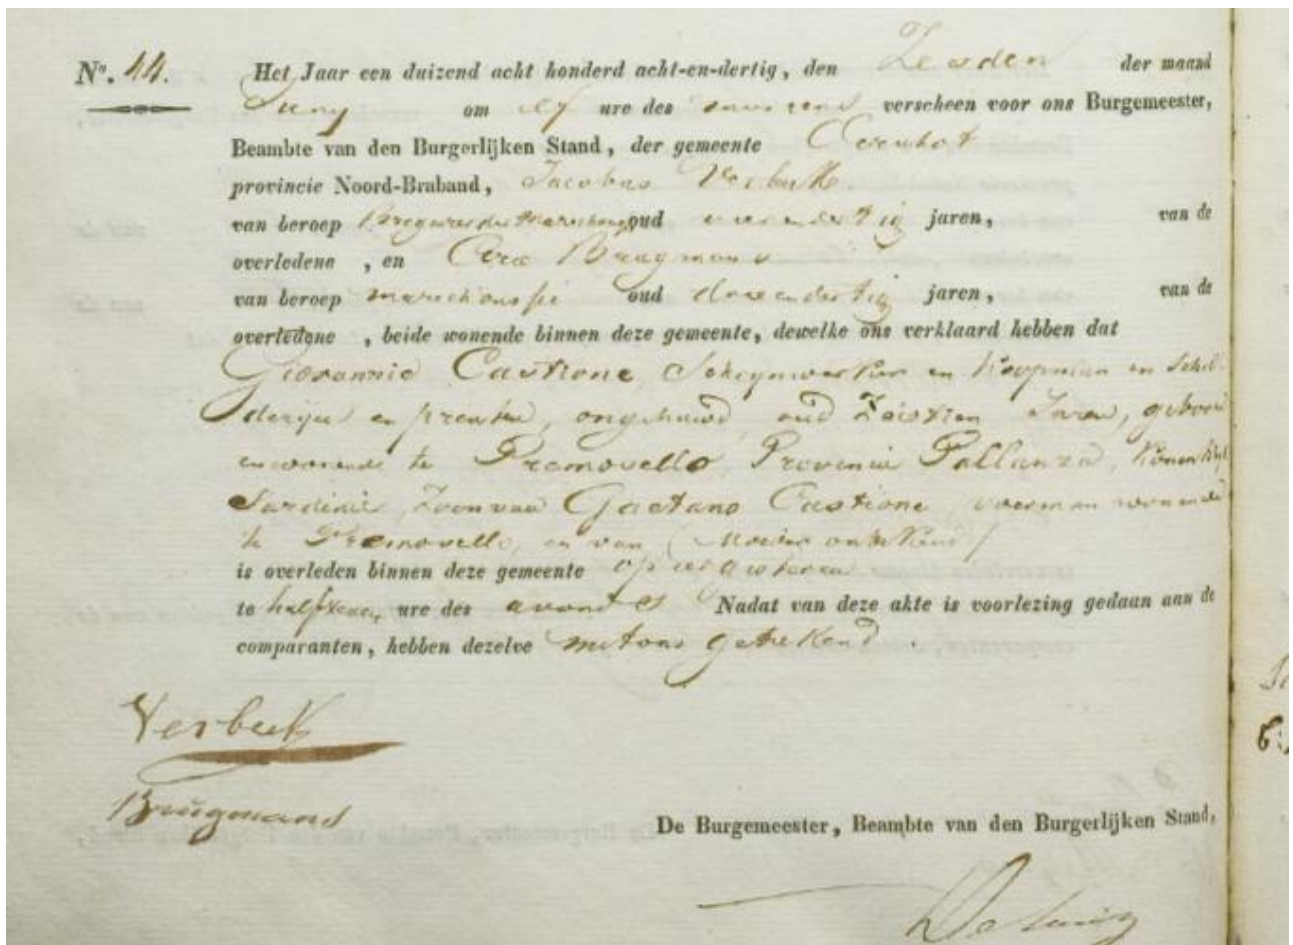 N°. 44. Het Jaar een duizend acht honderd acht-en-dertig, den Zesden der maand
Juny om elf ure des verscheen voor ons Burgemeester,
Beambte van den Burgerlijken Stand, der gemeente
provincie Noord-Braband, Jacobus Verbeek
van beroep oud jaren, van de
overledene , en Brugmans
van beroep marechaussé oud drieendertig jaren, van de
overledene , beide wonende binnen deze gemeente, dewelke ons verklaard hebben dat
Giovannie Castione, en Koopman in Schil-
derijen en prenten, ongehuwd, oud Jaren, geboren
en wonende te Premosello, Provincie Pallanza, Koninkrijk
Sardinie, Zoon van Gaetano Castione, voerman wonende
te Premosello, en van (Moeder onbekend)
is overleden binnen deze gemeente op eergisteren
te half ure des avonds Nadat van deze akte is voorlezing gedaan aan de
comparanten, hebben dezelve met ons getekend
Verbeek
Brugmans
De Burgemeester, Beambte van den Burgerlijken Stand,